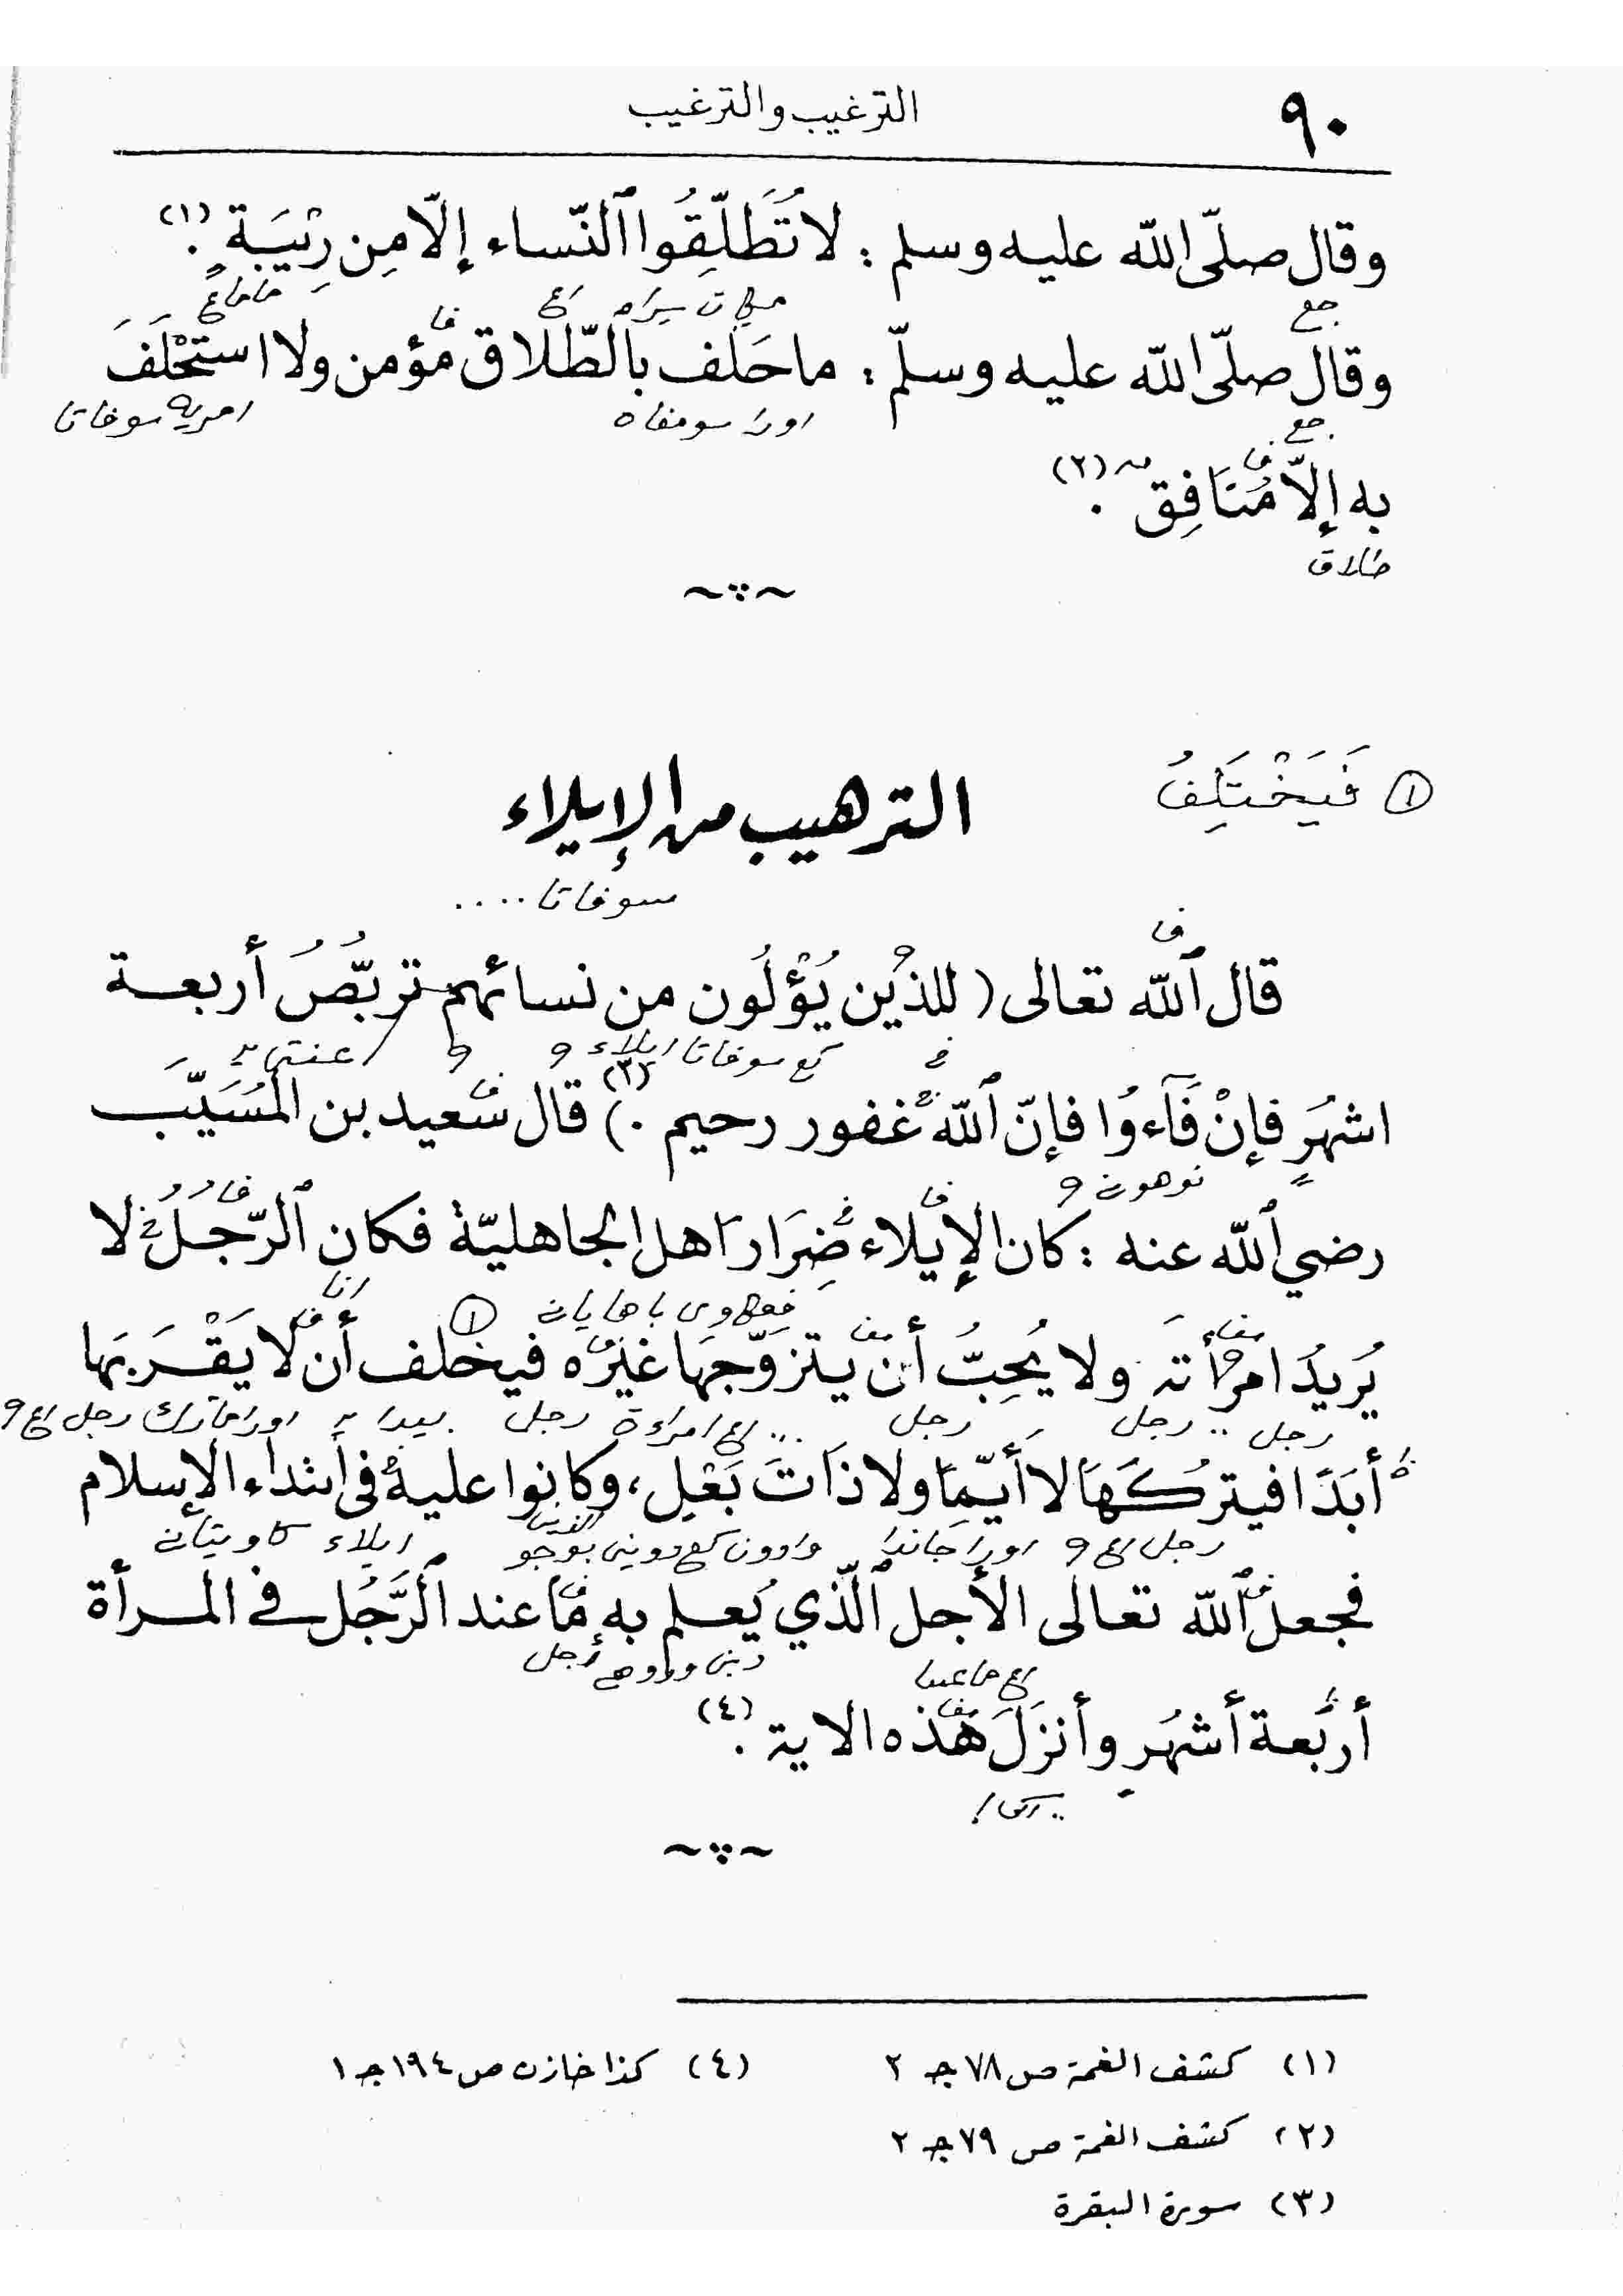 ٩٠
الترغيب والترغيب
وقال صلّى الله عليه وسلم : لا تُطَلِّقُوا ٱلنّساء إلّا مِن رِيْبَةٍ (١) .
وقال صلّى الله عليه وسلّم : ما حَلَف بٱلطّلاق مؤمن ولا استَحْلَفَ
اورا سومفاه
امريه سوفاتا
به إلّا مُنَافِق (٢) .
طلاق
الترهيب من الإيلاء
سوفاتا ....
① فَيَحْتَلِفُ
قال ٱلله تعالى ( للذيْن يُؤْلُون من نسائهم تربّصُ أربعة
سوفاتا ايلاء
اشهُرٍ فإنْ فَآءوُا فإنّ ٱلله غفور رحيم . ) (٣) قال سعيد بن المُسَيَّبَ
رضي ٱلله عنه : كان الإيلاء ضِرَارَ اهل الجاهليّة فكان ٱلرّجُلُ لا
يُريدُ امرأته ولا يُحِبُّ أن يتزوّجهَا غيرُه فيخلف أن لا يَقْرَبَها ①
رجل رجل رجل رجل
أبَدًا فيتركُهَا لا أيّمًا ولا ذَاتَ بَعْلٍ ، وكانوا عليه فى ابتداء الإسلام
رجل اورا جاندا
ايلاء
فجعل ٱلله تعالى الأجل ٱلّذي يُعلم به ما عند ٱلرَّجُل في المرأة
رجل
أربعة أشهُرٍ وأنزَلَ هَذه الاية (٤) .
(١) كشف الغمة ص ٧٨ جـ ٢
(٢) كشف الغمة ص ٧٩ جـ ٢
(٣) سورة البقرة
(٤) كذا خازن ص ١٩٤ جـ ١